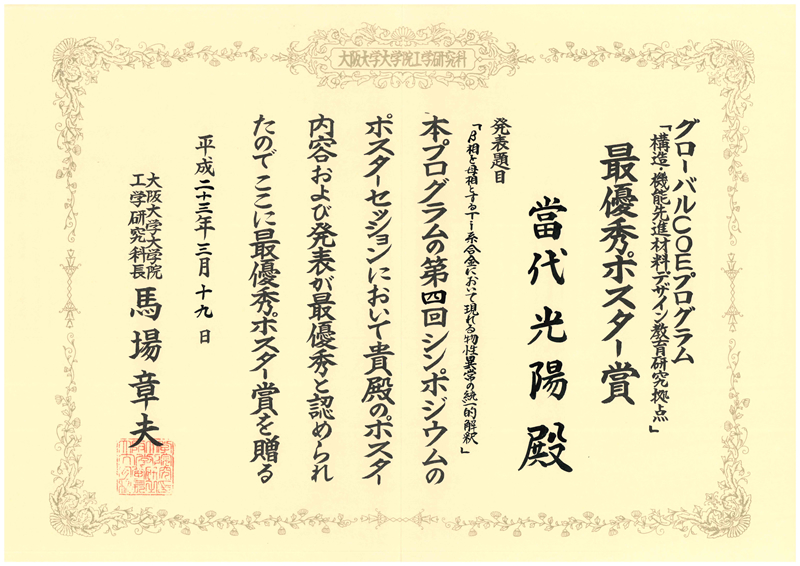 大阪大学大学院工学研究科
グローバルCOEプログラム
「構造・機能先進材料デザイン教育研究拠点」
最優秀ポスター賞
當代光陽殿
発表題目
「β相を母相とするTi系合金において現れる物性異常の統一的解釈」
本プログラムの第四回シンポジウムの
ポスターセッションにおいて貴殿のポスター
内容および発表が最優秀と認められ
たのでここに最優秀ポスター賞を贈る
平成二十三年三月十九日
大阪大学大学院
工学研究科長
馬場章夫